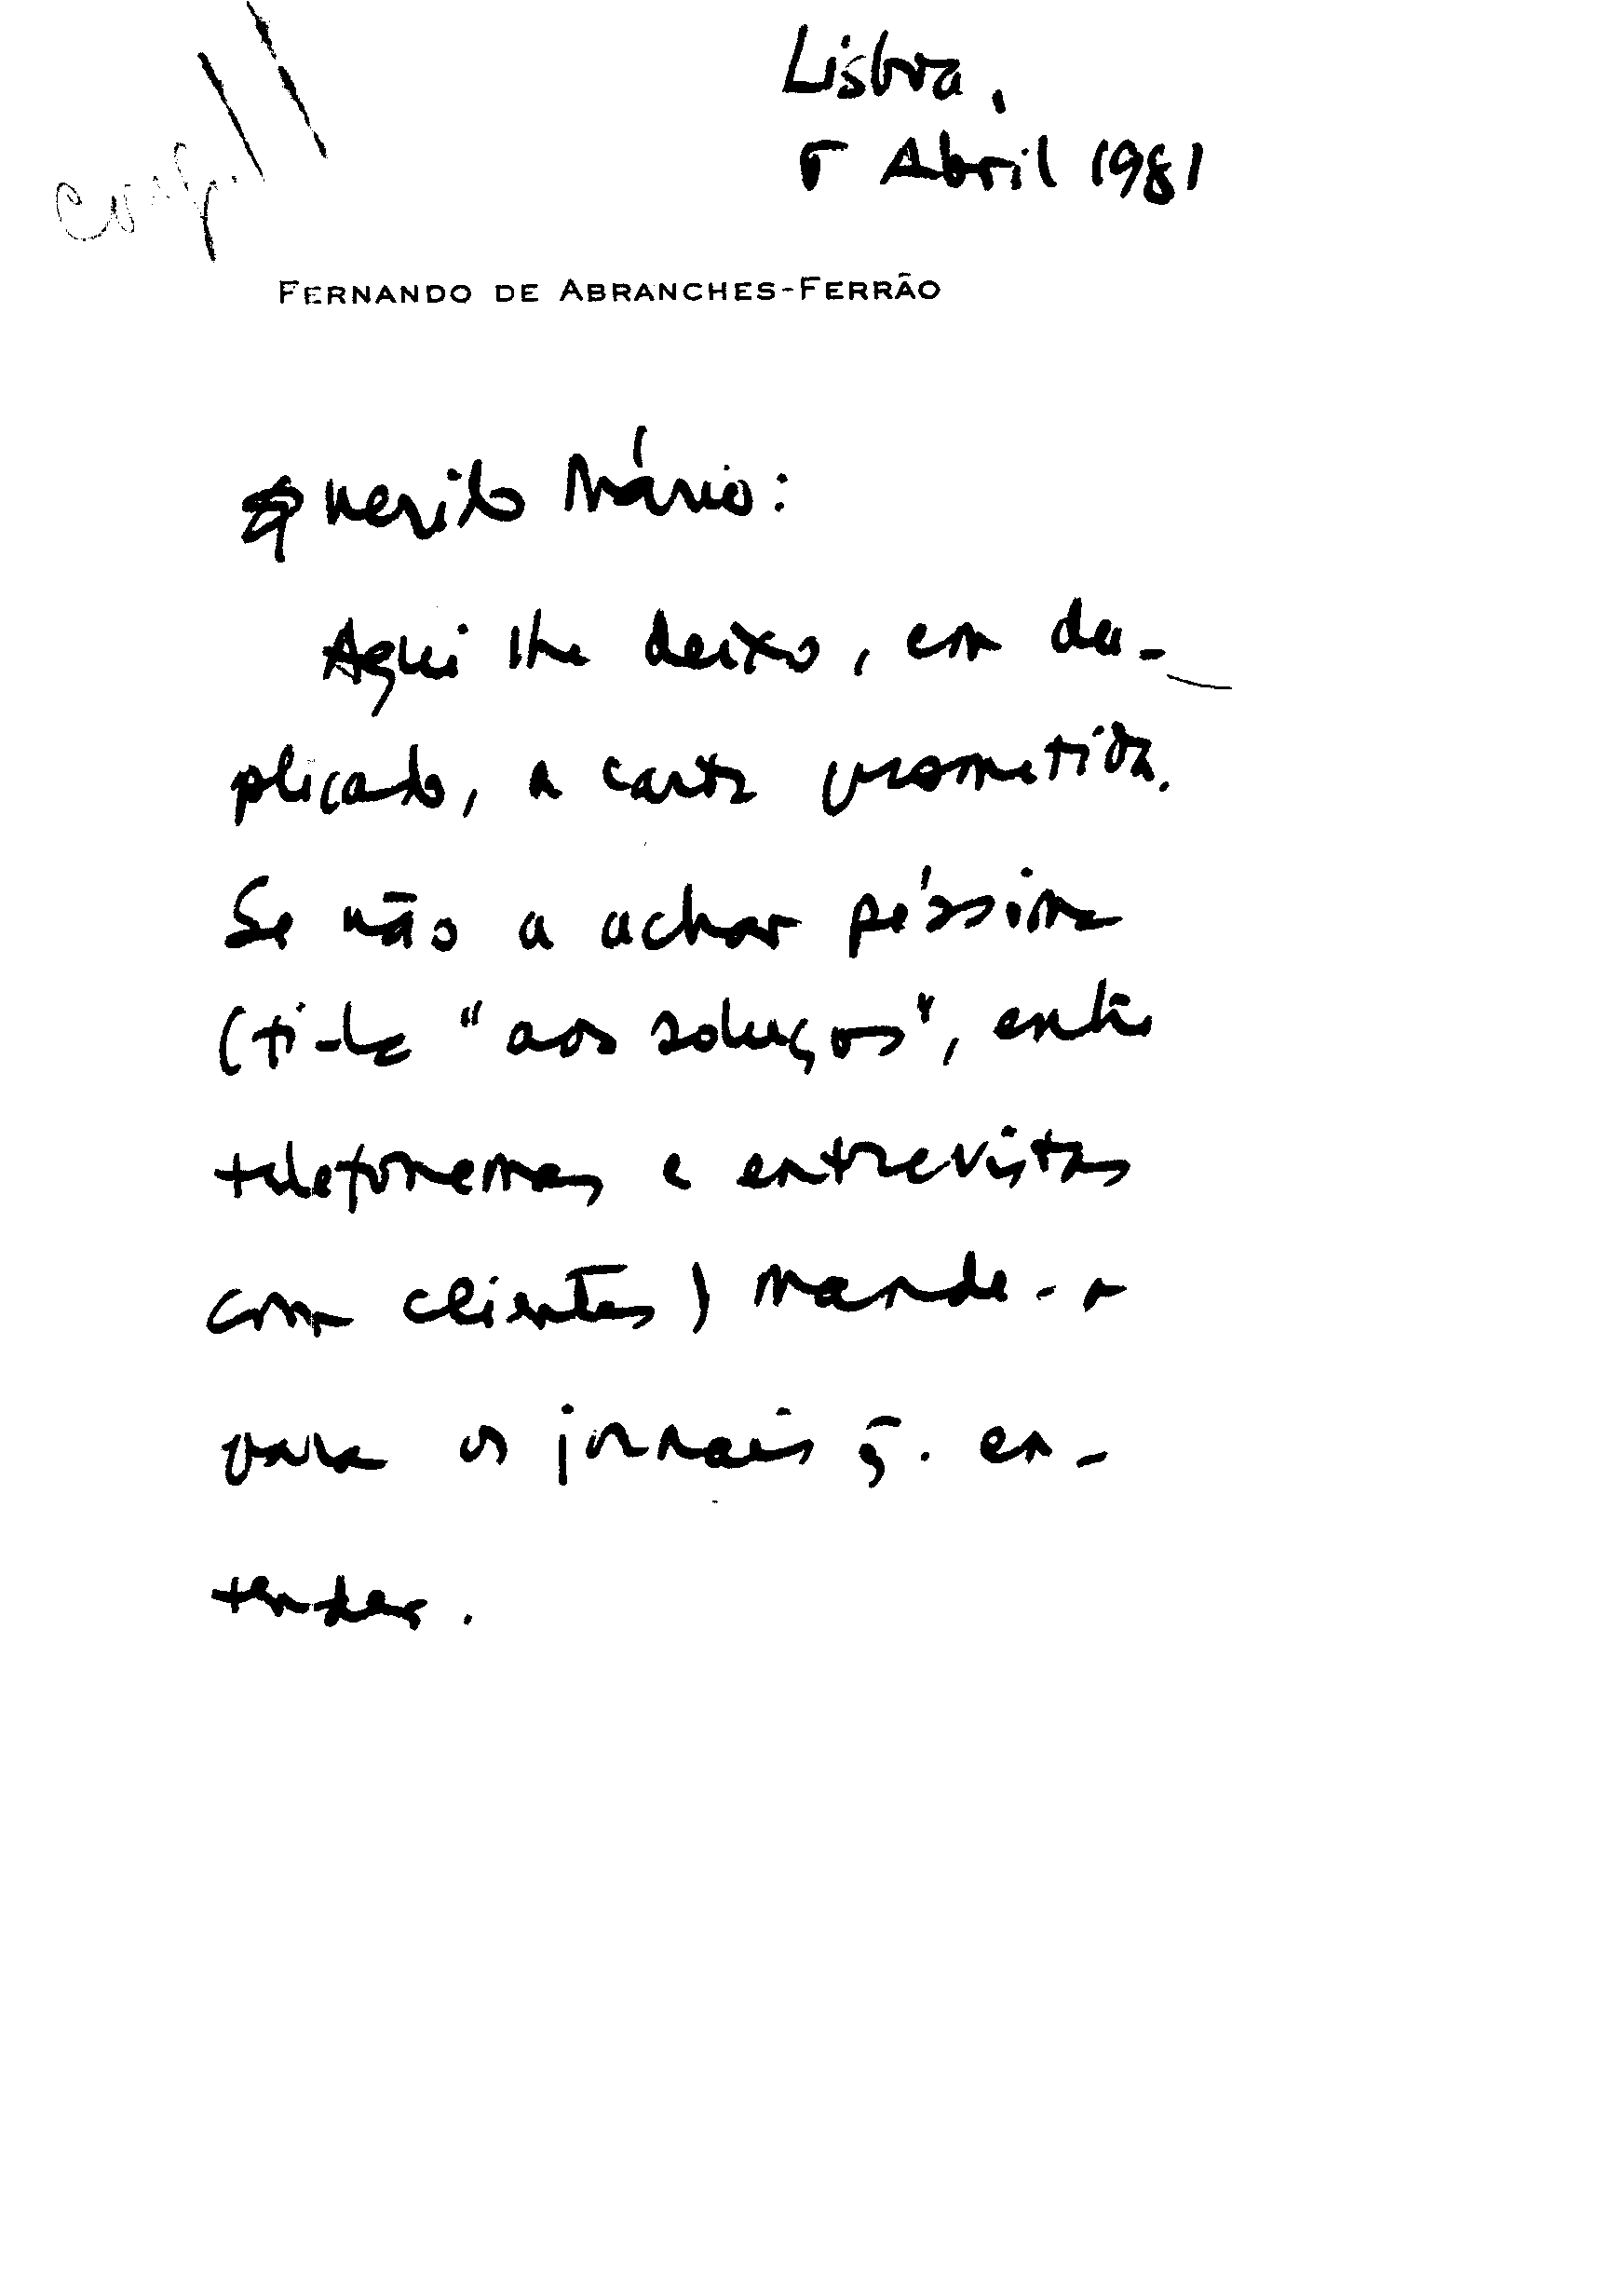 Lisboa,
5 Abril 1981
conf.
FERNANDO DE ABRANCHES-FERRÃO
Querido Mário:
Aqui lhe deixo, em du-
plicado, a carta prometida.
Se não a achar péssima
(fi-la "aos soluços", entre
telefonemas e entrevistas
com clientes) mande-a
para os jornais q. en-
tender.